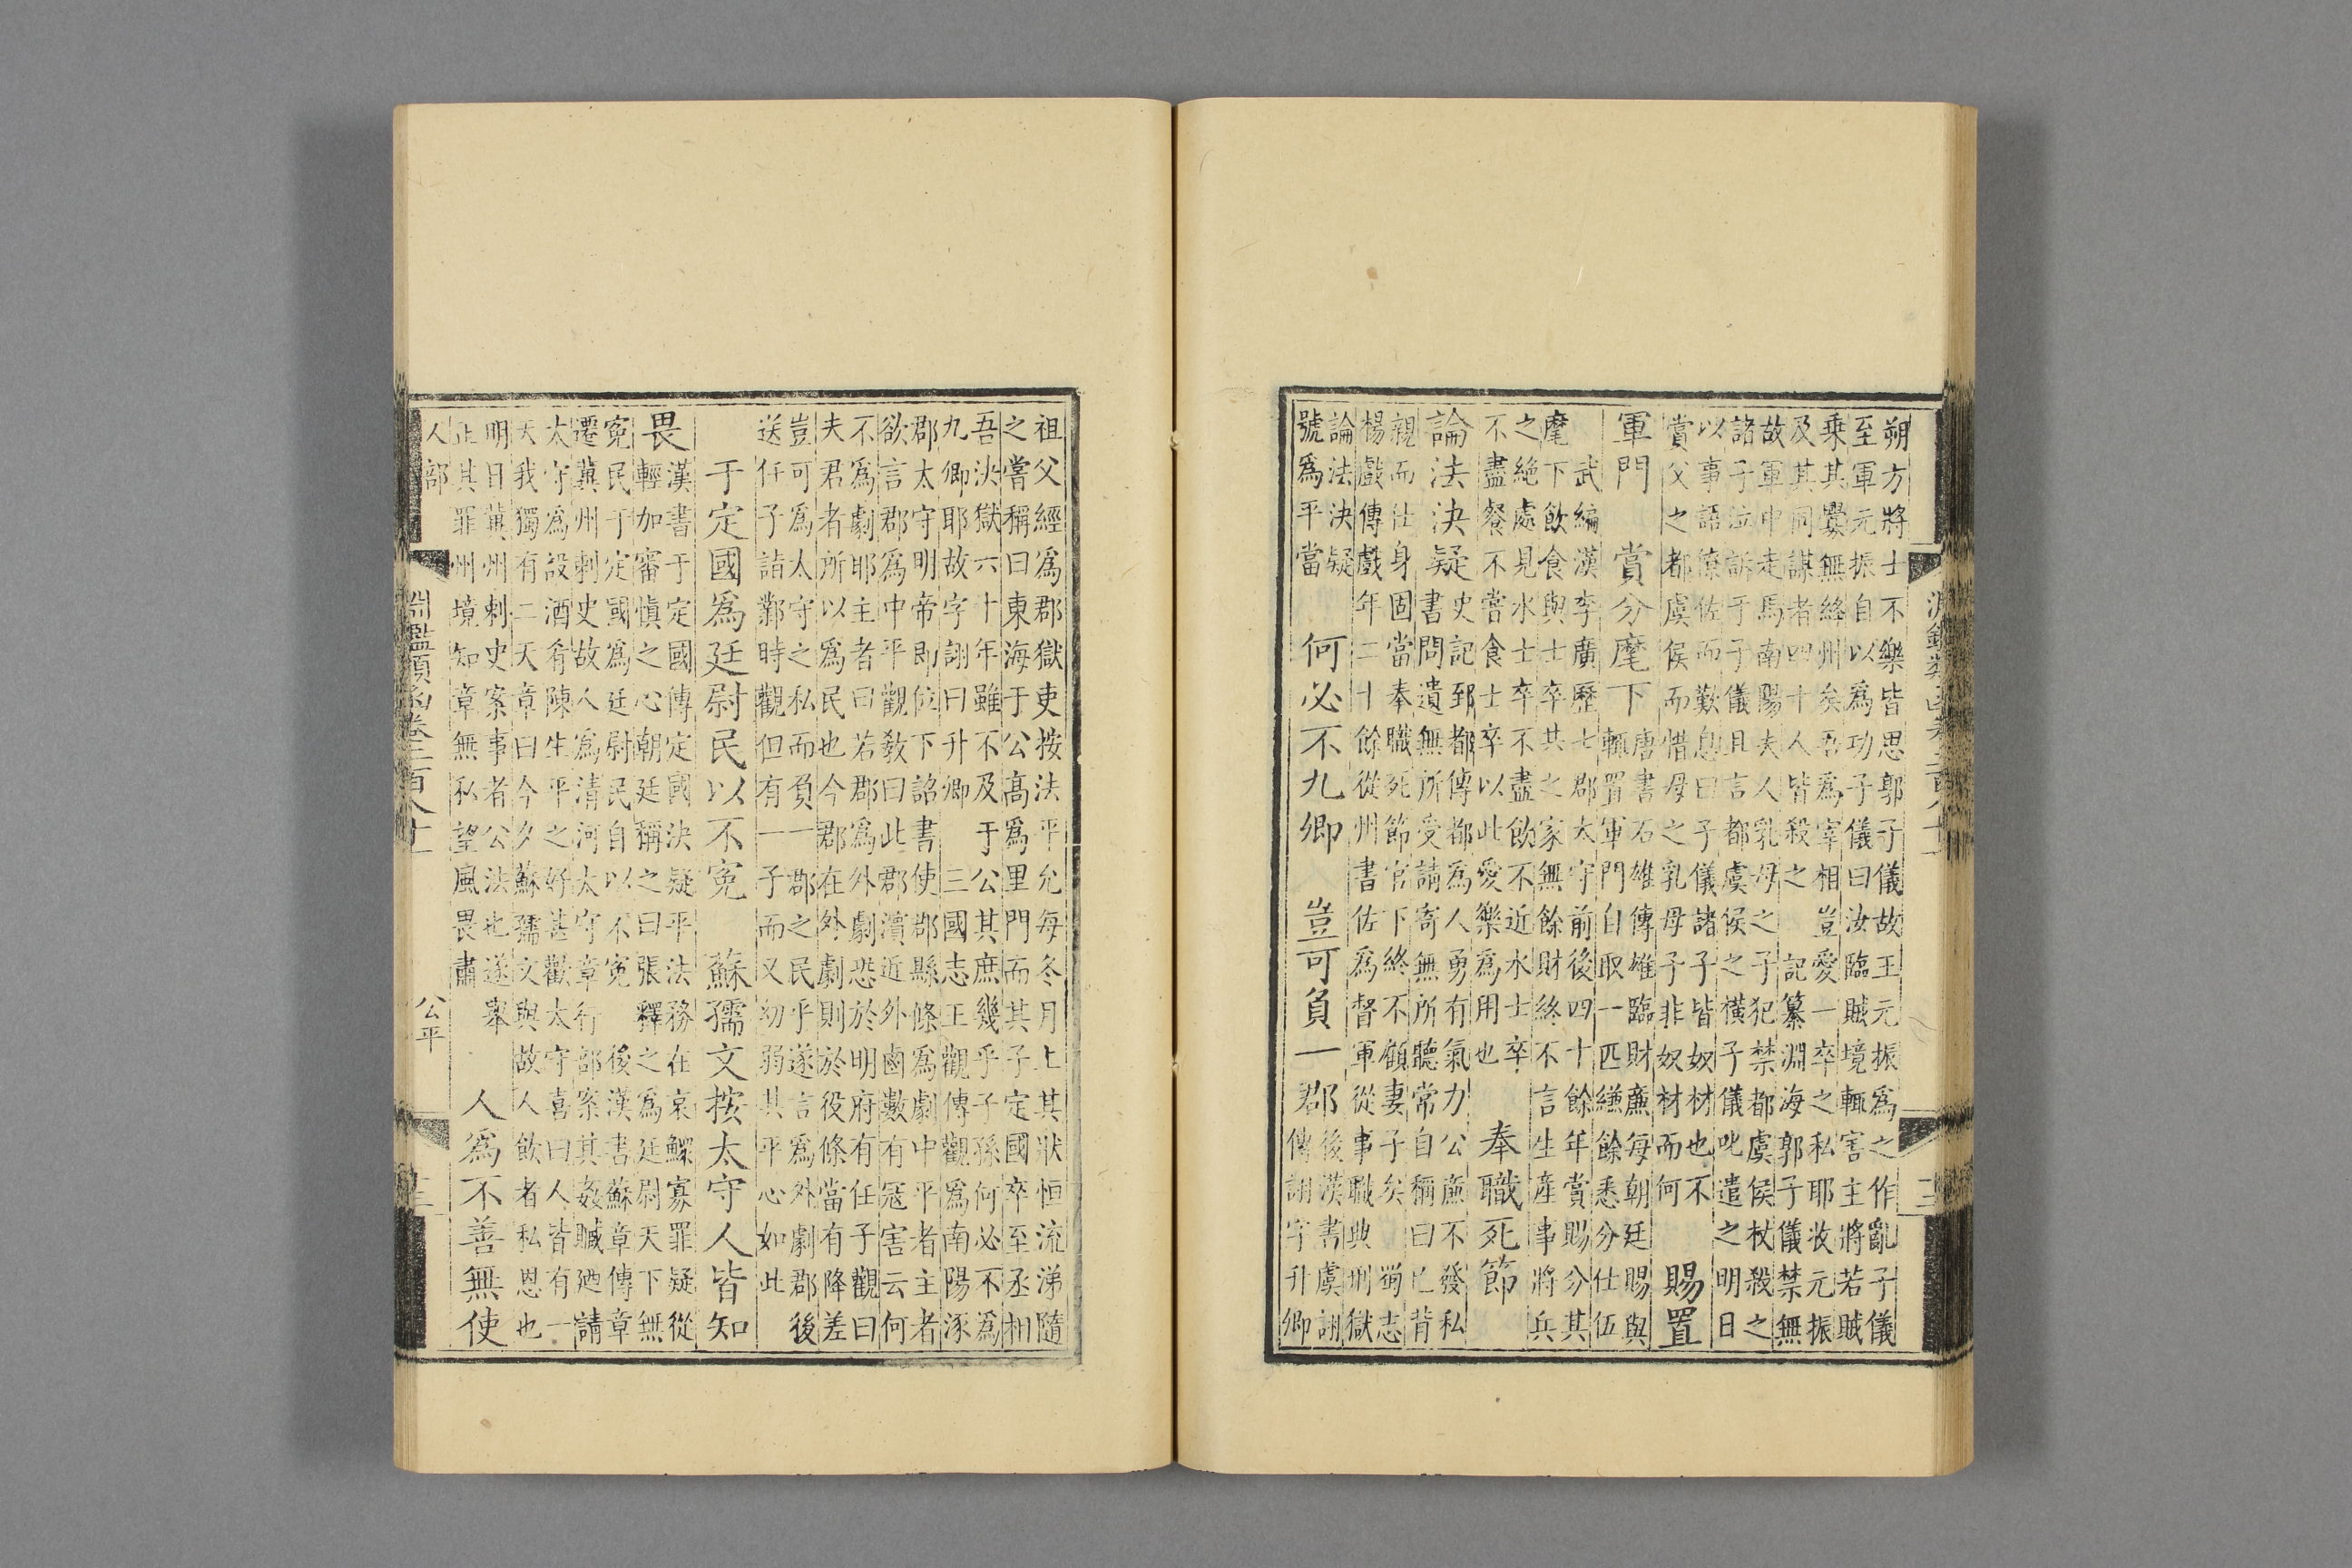 朔方將士不樂皆思郭子儀故王元振爲之作亂子儀
至軍元振自以爲功子儀曰汝臨賊境輒害主將若賊
乘其釁無絳州矣吾爲宰相豈愛一卒之私耶收元振
及其同謀者四十人皆殺之 記纂淵海郭子儀禁無
故軍中走馬南陽夫人乳母之子犯禁都虞侯杖殺之
諸子泣訴于子儀且言都虞侯之橫子儀叱遣之明日
以事語僚佐而歎息曰子儀諸子皆奴材也不
賞父之都虞侯而惜母之乳母子非奴材而何
賜置
軍門 賞分麾下
唐書石雄傳雄臨財廉每朝廷賜與
輒置軍門自取一匹縑餘悉分仕伍
武編漢李廣歷七郡太守前後四十餘年賞賜分其
麾下飲食與士卒共之家無餘財終不言生產事將兵
之絕處見水士卒不盡飲不近水士卒
不盡餐不嘗食士卒以此愛樂爲用也
奉職死節
論法決疑
史記郅都傳都爲人勇有氣力公廉不發私
書問遺無所受請寄無所聽常自稱曰已背
親而仕身固當奉職死節官下終不顧妻子矣 蜀志
楊戲傳戲年二十餘從州書佐爲督軍從事職典刑獄
論法決疑
號爲平當
何必不九卿 豈可負一郡
後漢書虞詡
傳詡字升卿
祖父經爲郡獄吏按法平允每冬月上其狀恒流涕隨
之嘗稱曰東海于公高爲里門而其子定國卒至丞相
吾決獄六十年雖不及于公其庶幾乎子孫何必不爲
九卿耶故字詡曰升卿 三國志王觀傳觀爲南陽涿
郡太守明帝即位下詔書使郡縣條爲劇中平者主者
欲言郡爲中平觀敎曰此郡濱近外鹵數有寇害云何
不爲劇耶主者曰若郡爲外劇恐於明府有任子觀曰
夫君者所以爲民也今郡在外劇則於役條當有降差
豈可爲太守之私而負一郡之民乎遂言爲外劇郡後
送任子詣鄴時觀但有一子而又幼弱其平心如此
于定國爲廷尉民以不冤 蘇孺文按太守人皆知
畏
漢書于定國傳定國決疑平法務在哀鰥寡罪疑從
輕加審愼之心朝廷稱之曰張釋之爲廷尉天下無
冤民于定國爲廷尉民自以不冤 後漢書蘇章傳章
遷冀州刺史故人爲清河太守章行部案其姦贓廼請
太守爲設酒肴陳生平之好甚歡太守喜曰人皆有一
天我獨有二天章曰今夕蘇孺文與故人飲者私恩也
明日冀州刺史案事者公法也遂舉
正其罪州境知章無私望風畏肅
人爲不善無使
人部
淵鑑類函卷二百八十一
公平
十三